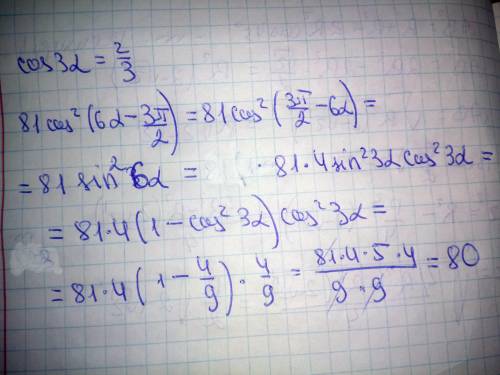 cos3α = 2/3
81cos²(6α - 3π/2) = 81cos²(3π/2 - 6α) =
= 81 sin²6α = · 81·4sin²3α cos²3α =
= 81·4(1 - cos²3α)cos²3α =
= 81·4(1 - 4/9)·4/9 = 81·4·5·4/9·9 = 80